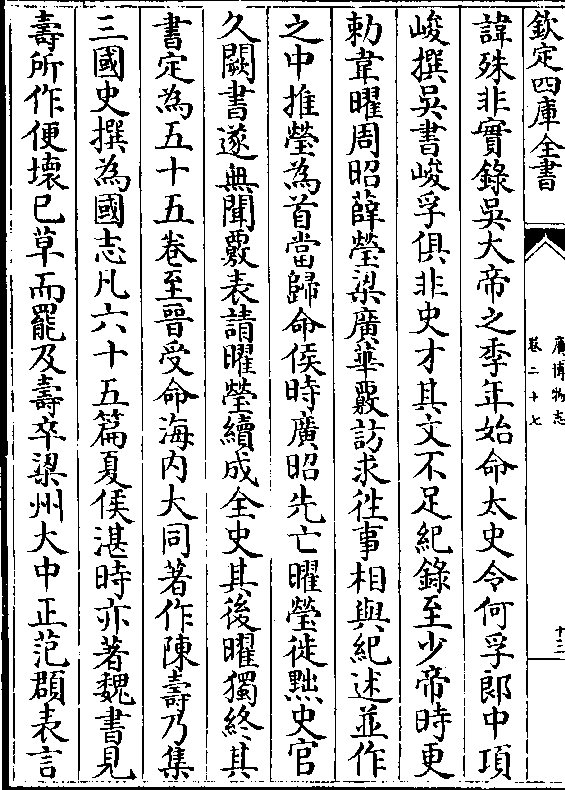 欽定四庫全書
廣博物志
卷二十七
十三
諱殊非實錄吳大帝之季年始命太史令何孚郎中項
峻撰吳書峻孚俱非史才其文不足紀錄至少帝時更
勅韋曜周昭薛瑩梁廣華覈訪求往事相與紀述並作
之中推瑩為首當歸命侯時廣昭先亡曜瑩徙黜史官
久闕書遂無聞覈表請曜瑩續成全史其後曜獨終其
書定為五十五卷至晉受命海內大同著作陳壽乃集
三國史撰為國志凡六十五篇夏侯湛時亦著魏書見
壽所作便壞已草而罷及壽卒梁州大中正范頵表言